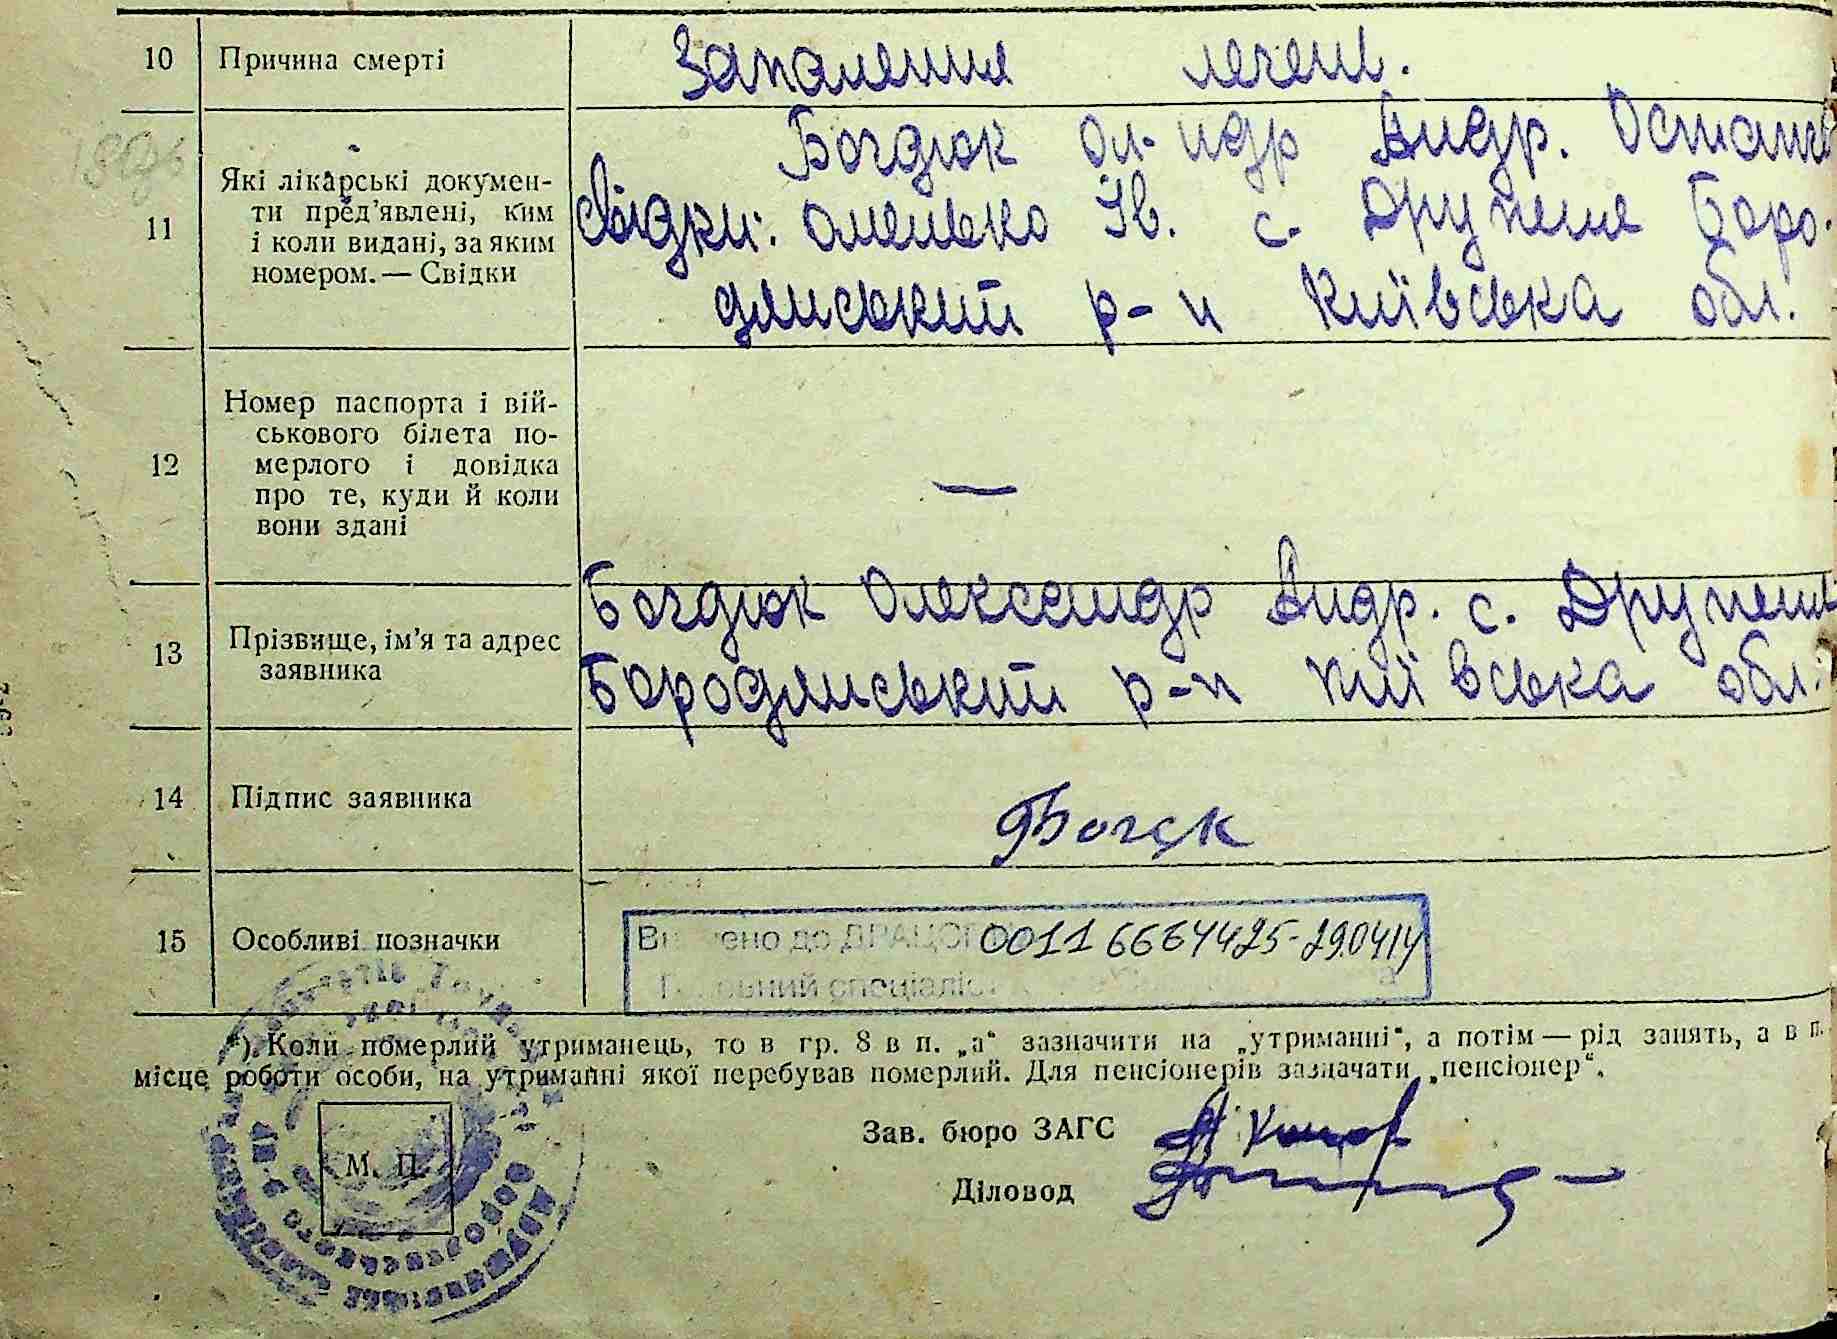 10 Причина смерті Запалення печені.
Богдюк Ол-ндр Андр.
11 Які лікарські документи пред'явлені, ким і коли видані, за яким номером. — Свідки
Свідки: Омелько Ів. с. Друпеня Боро-
дянський р-н Київська обл.
12 Номер паспорта і вій-
ськового білета по-
мерлого і довідка
про те, куди й коли
вони здані —
13 Прізвище, ім'я та адрес
заявника
Богдюк Олександр Андр. с.
Бородянський р-н Київська обл.
14 Підпис заявника
15 Особливі позначки
до ДРАЦСГ 00116664425-290414
*). Коли померлий утриманець, то в гр. 8 в п. „а“ зазначити на „утриманні“, а потім — рід занять, а в п.
місце роботи особи, на утриманні якої перебував померлий. Для пенсіонерів зазначати „пенсіонер“.
Зав. бюро ЗАГС
М. П.
Діловод